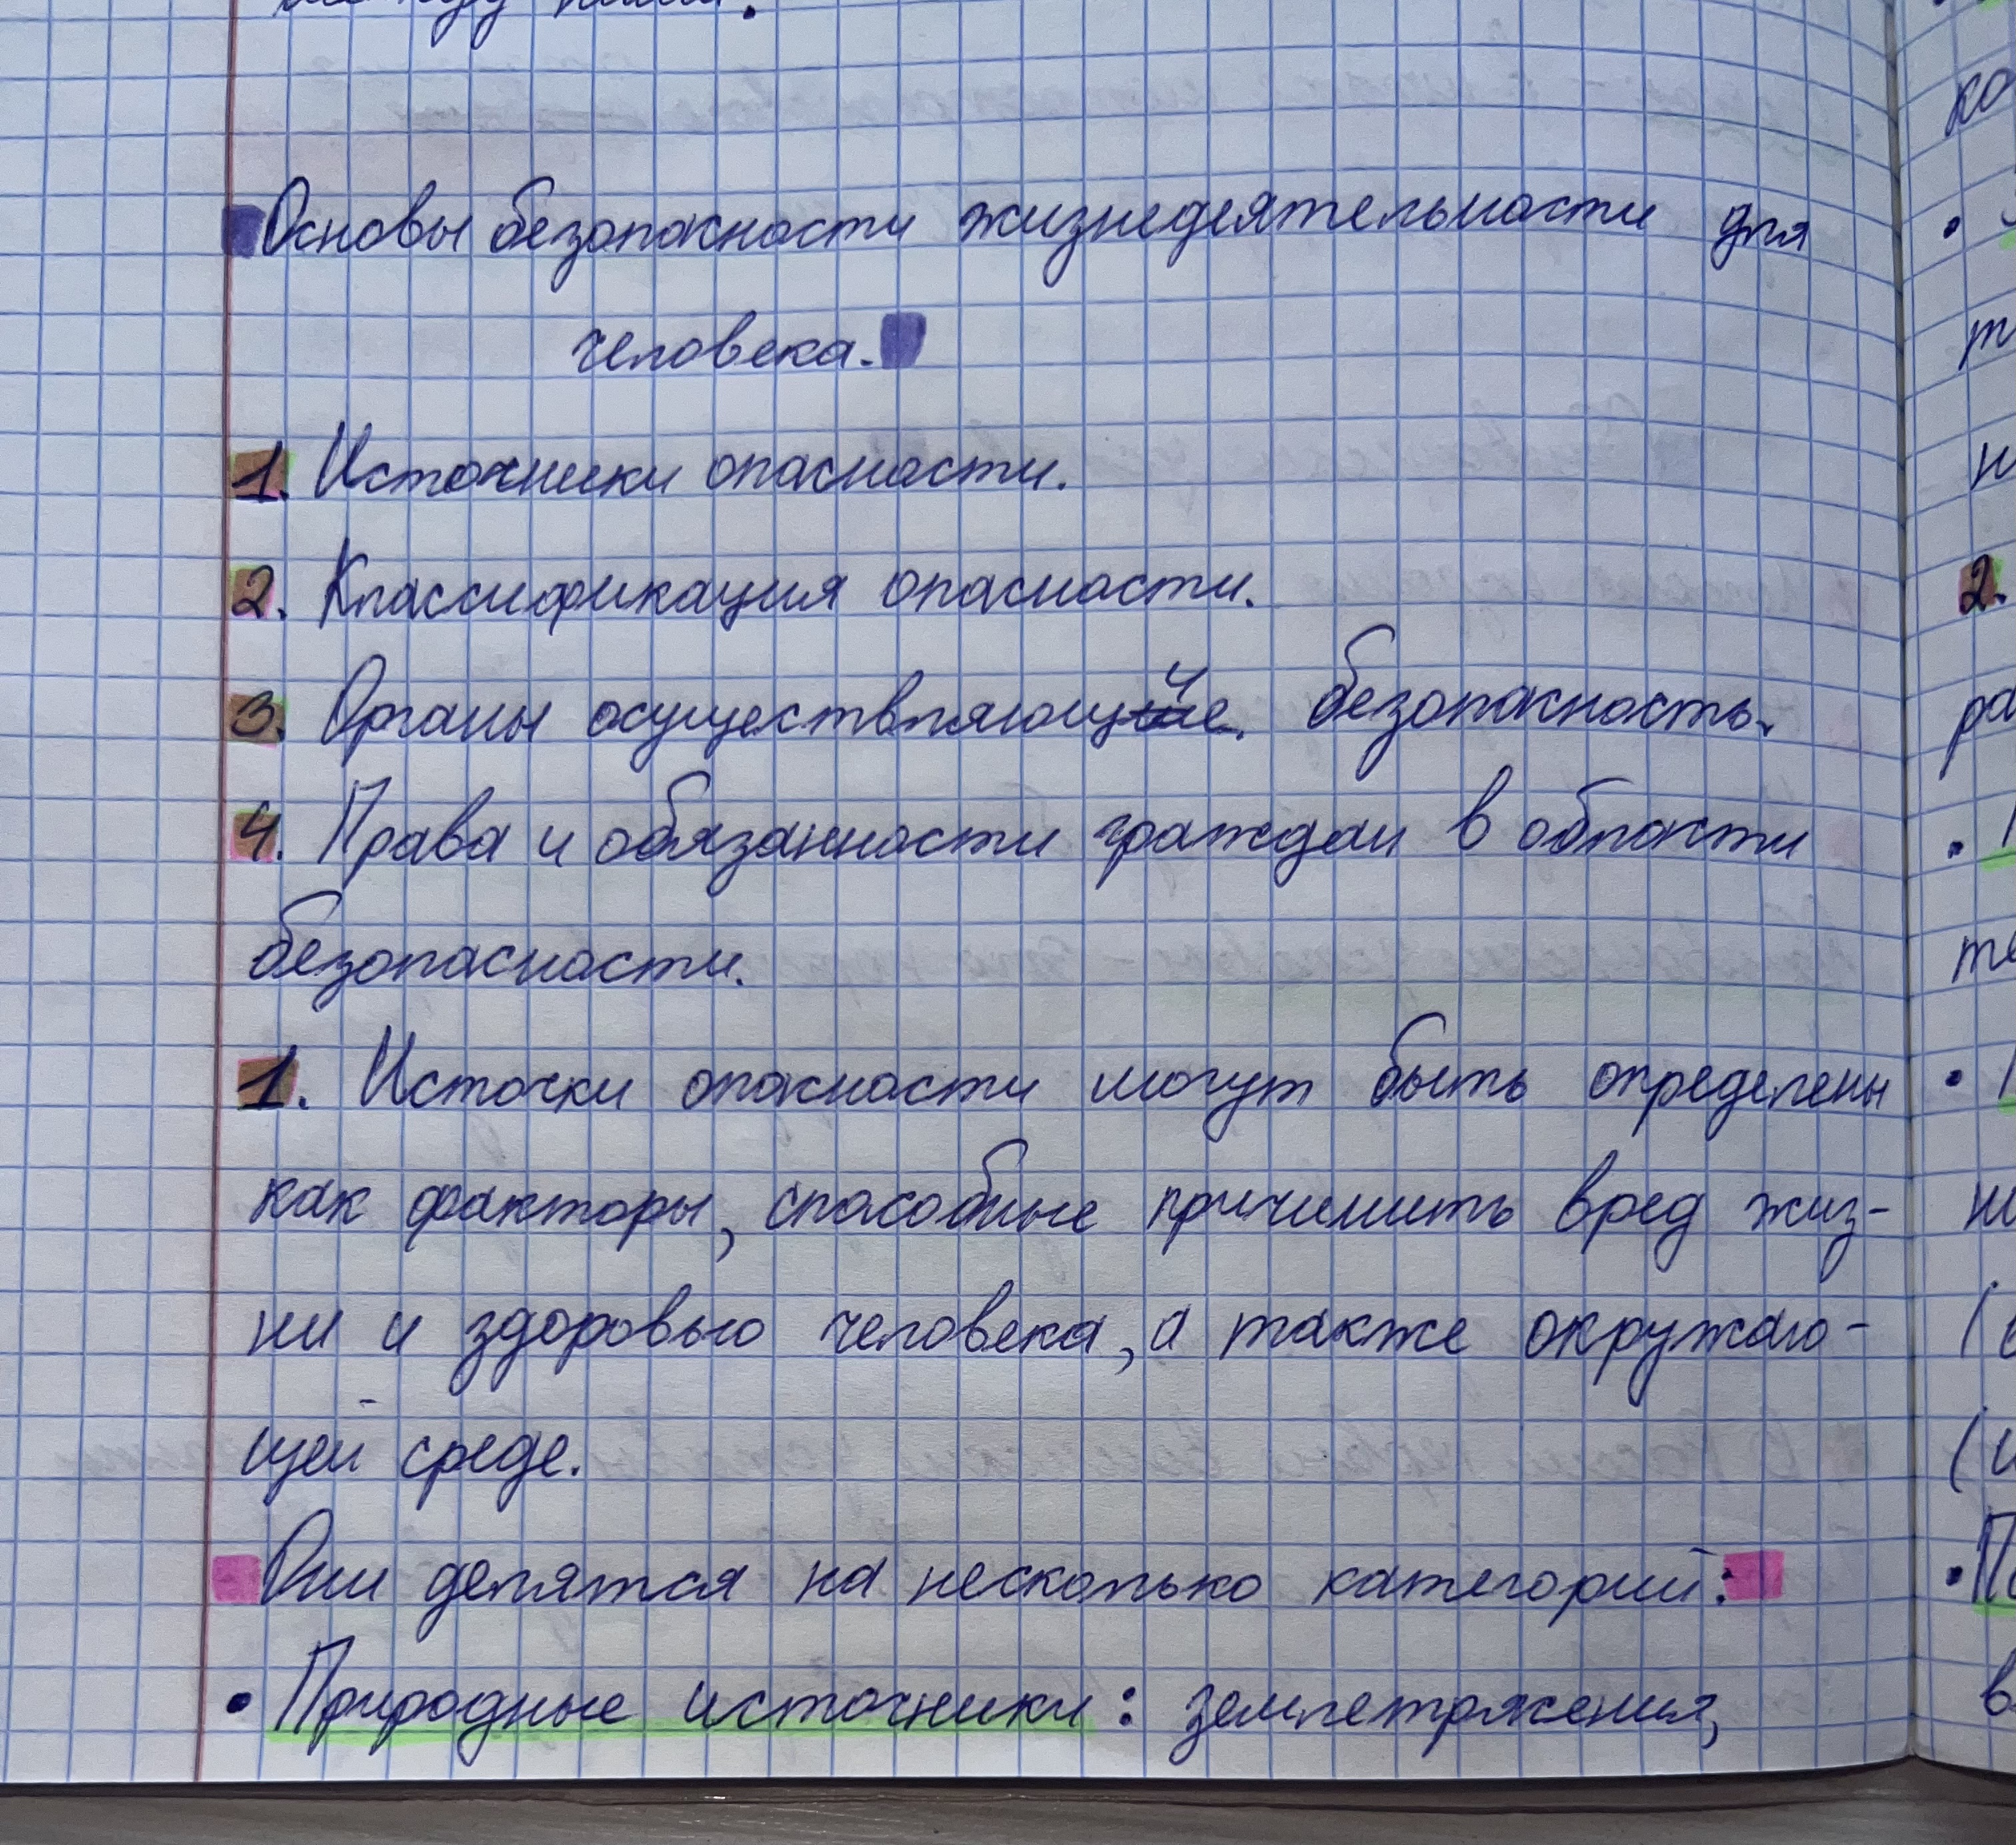 Основы безопасности жизнедеятельности для
человека.
1. Источники опасности.
2. Классификация опасности.
3. Органы осуществляющие. безопасность.
4. Права и обязанности граждан в области
безопасности.
1. Источки опасности могут быть определены
как факторы, способные причинить вред жиз-
ни и здоровью человека, а также окружаю-
щей среде.
Они делятся на несколько категорий:
• Природные источники: землетрясения,
2.